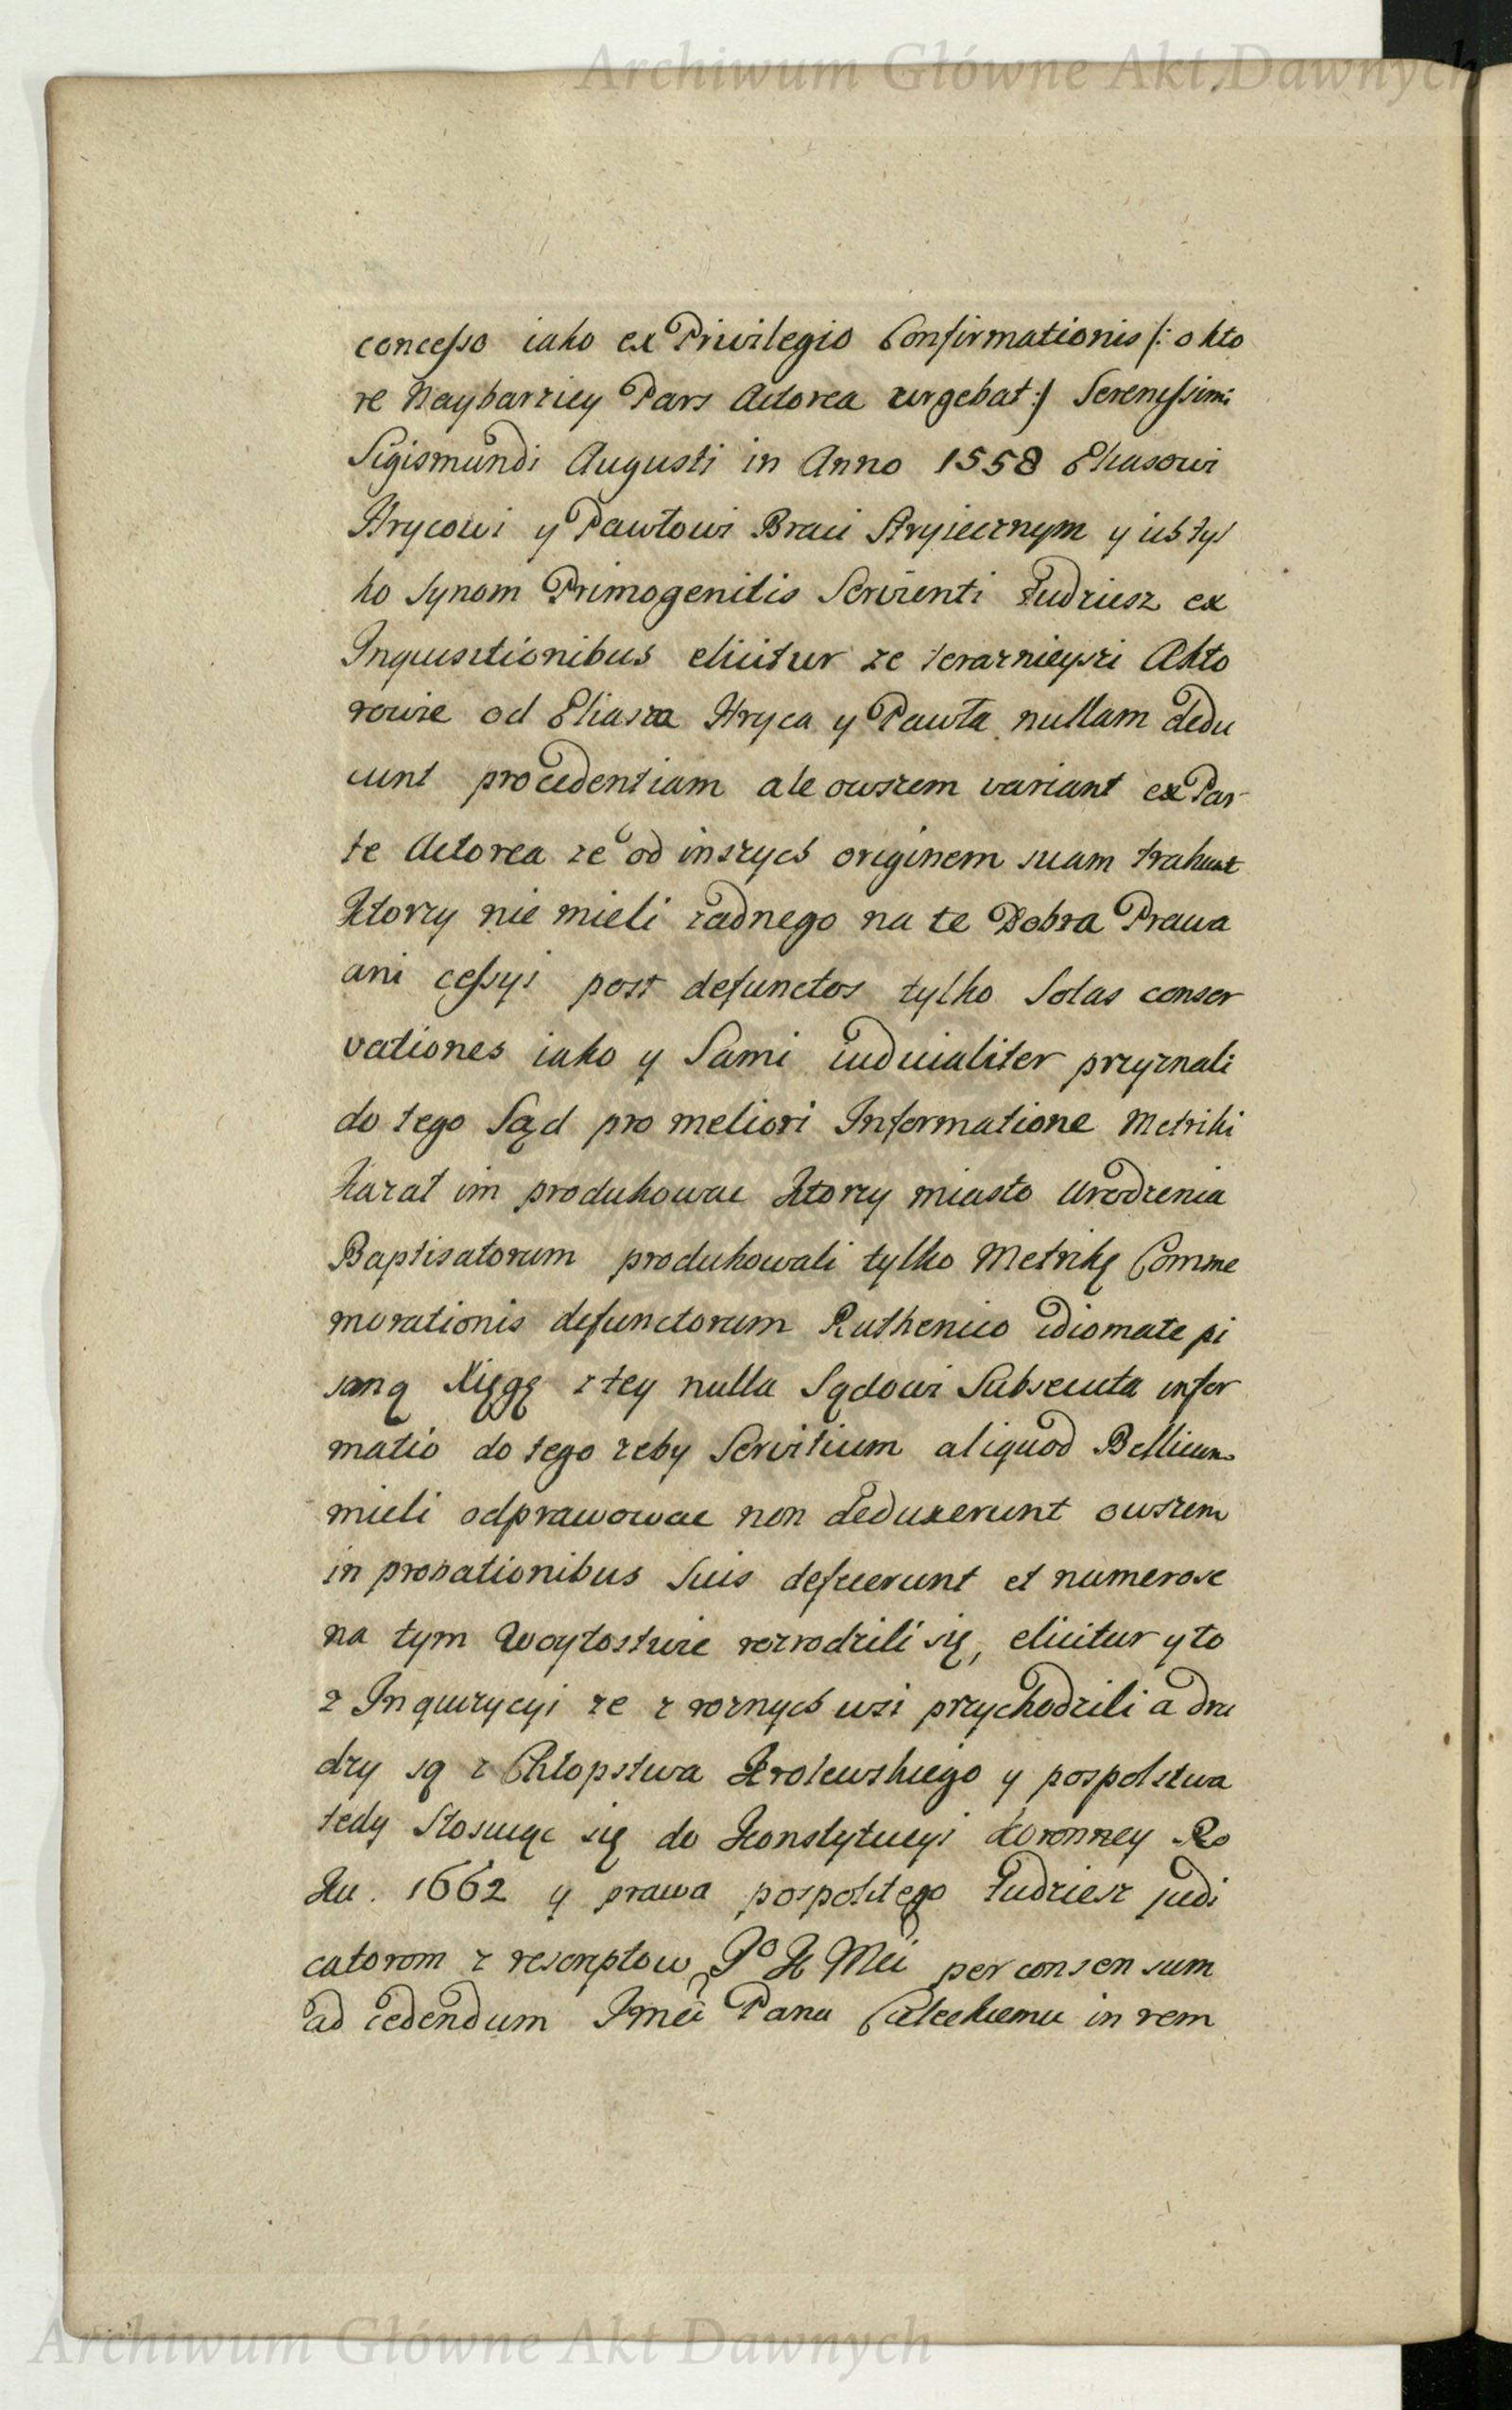 Archiwum Główne Akt Dawnych
concesso iako ex Privilegio Confirmationis /: o kto
re Naybarziey Pars Actorea urgebat :/ Serenissimi
Sigismundi Augusti in Anno 1558 Eliasowi
Hrycowi y Pawłowi Braci Stryiecznym y ich tyl
ko Synom Primogenitis Servienti Tudziesz ex
Inquisitionibus elicitur ze teraznieyszi Akto
rowie od Eliasza Hryca y Pawła nullam dedu
cunt procedentiam ale owszem variant ex Par-
te Actorea ze od inszych originem suam trahunt
Ktorzy nie mieli zadnego na te Dobra Prawa
ani cessyi post defunctos tylko Solas conser
vationes iako y Sami iudicialiter przyznali
do tego Sąd pro meliori Informatione Metriki
kazał im produkowac Ktorzy miasto Urodzenia
Baptisatorum produkowali tylko Metrikę Comme
morationis defunctorum Ruthenico idiomate pi
saną Xięgę z tey nulla Sądowi Subsecuta infor
matio do tego zeby Servitium aliquod Bellicum
mieli odprawowac non deduxerunt owszem
in probationibus Suis defuerunt et numerose
na tym Woytostwie rozrodzili się, elicitur y to
z Inquizycyi ze z roznych wsi przychodzili a dru
dzy są z Chłopstwa Krolewskiego y pospolstwa
tedy Stosuiąc się do Konstytucyi Koronney Ro
Ku. 1662 y prawa pospolitego Tudziesz judi
catorom z rescriptow Jo K Mci per consensum
ad cedendum Jmci Panu Załeckiemu in rem
Archiwum Główne Akt Dawnych